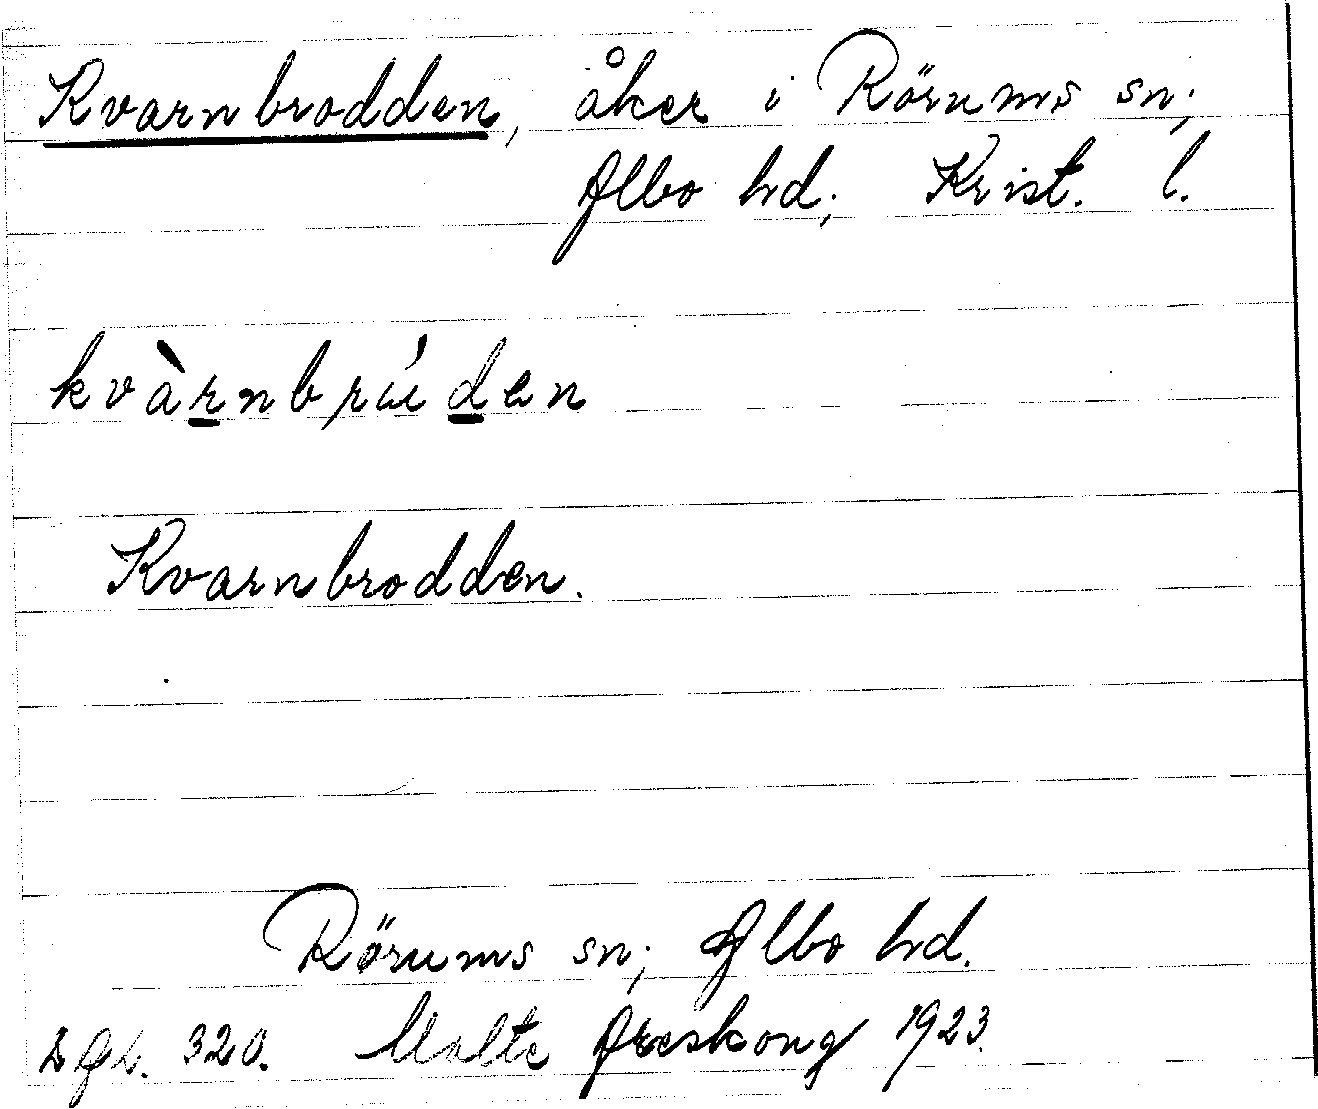 Kvarnbrodden, åker i Rörums sn;
Albo hd; Krist. l.
Kvarnbrodden.
Rörums sn; Albo hd.
320. Malte Areskoug 1923.